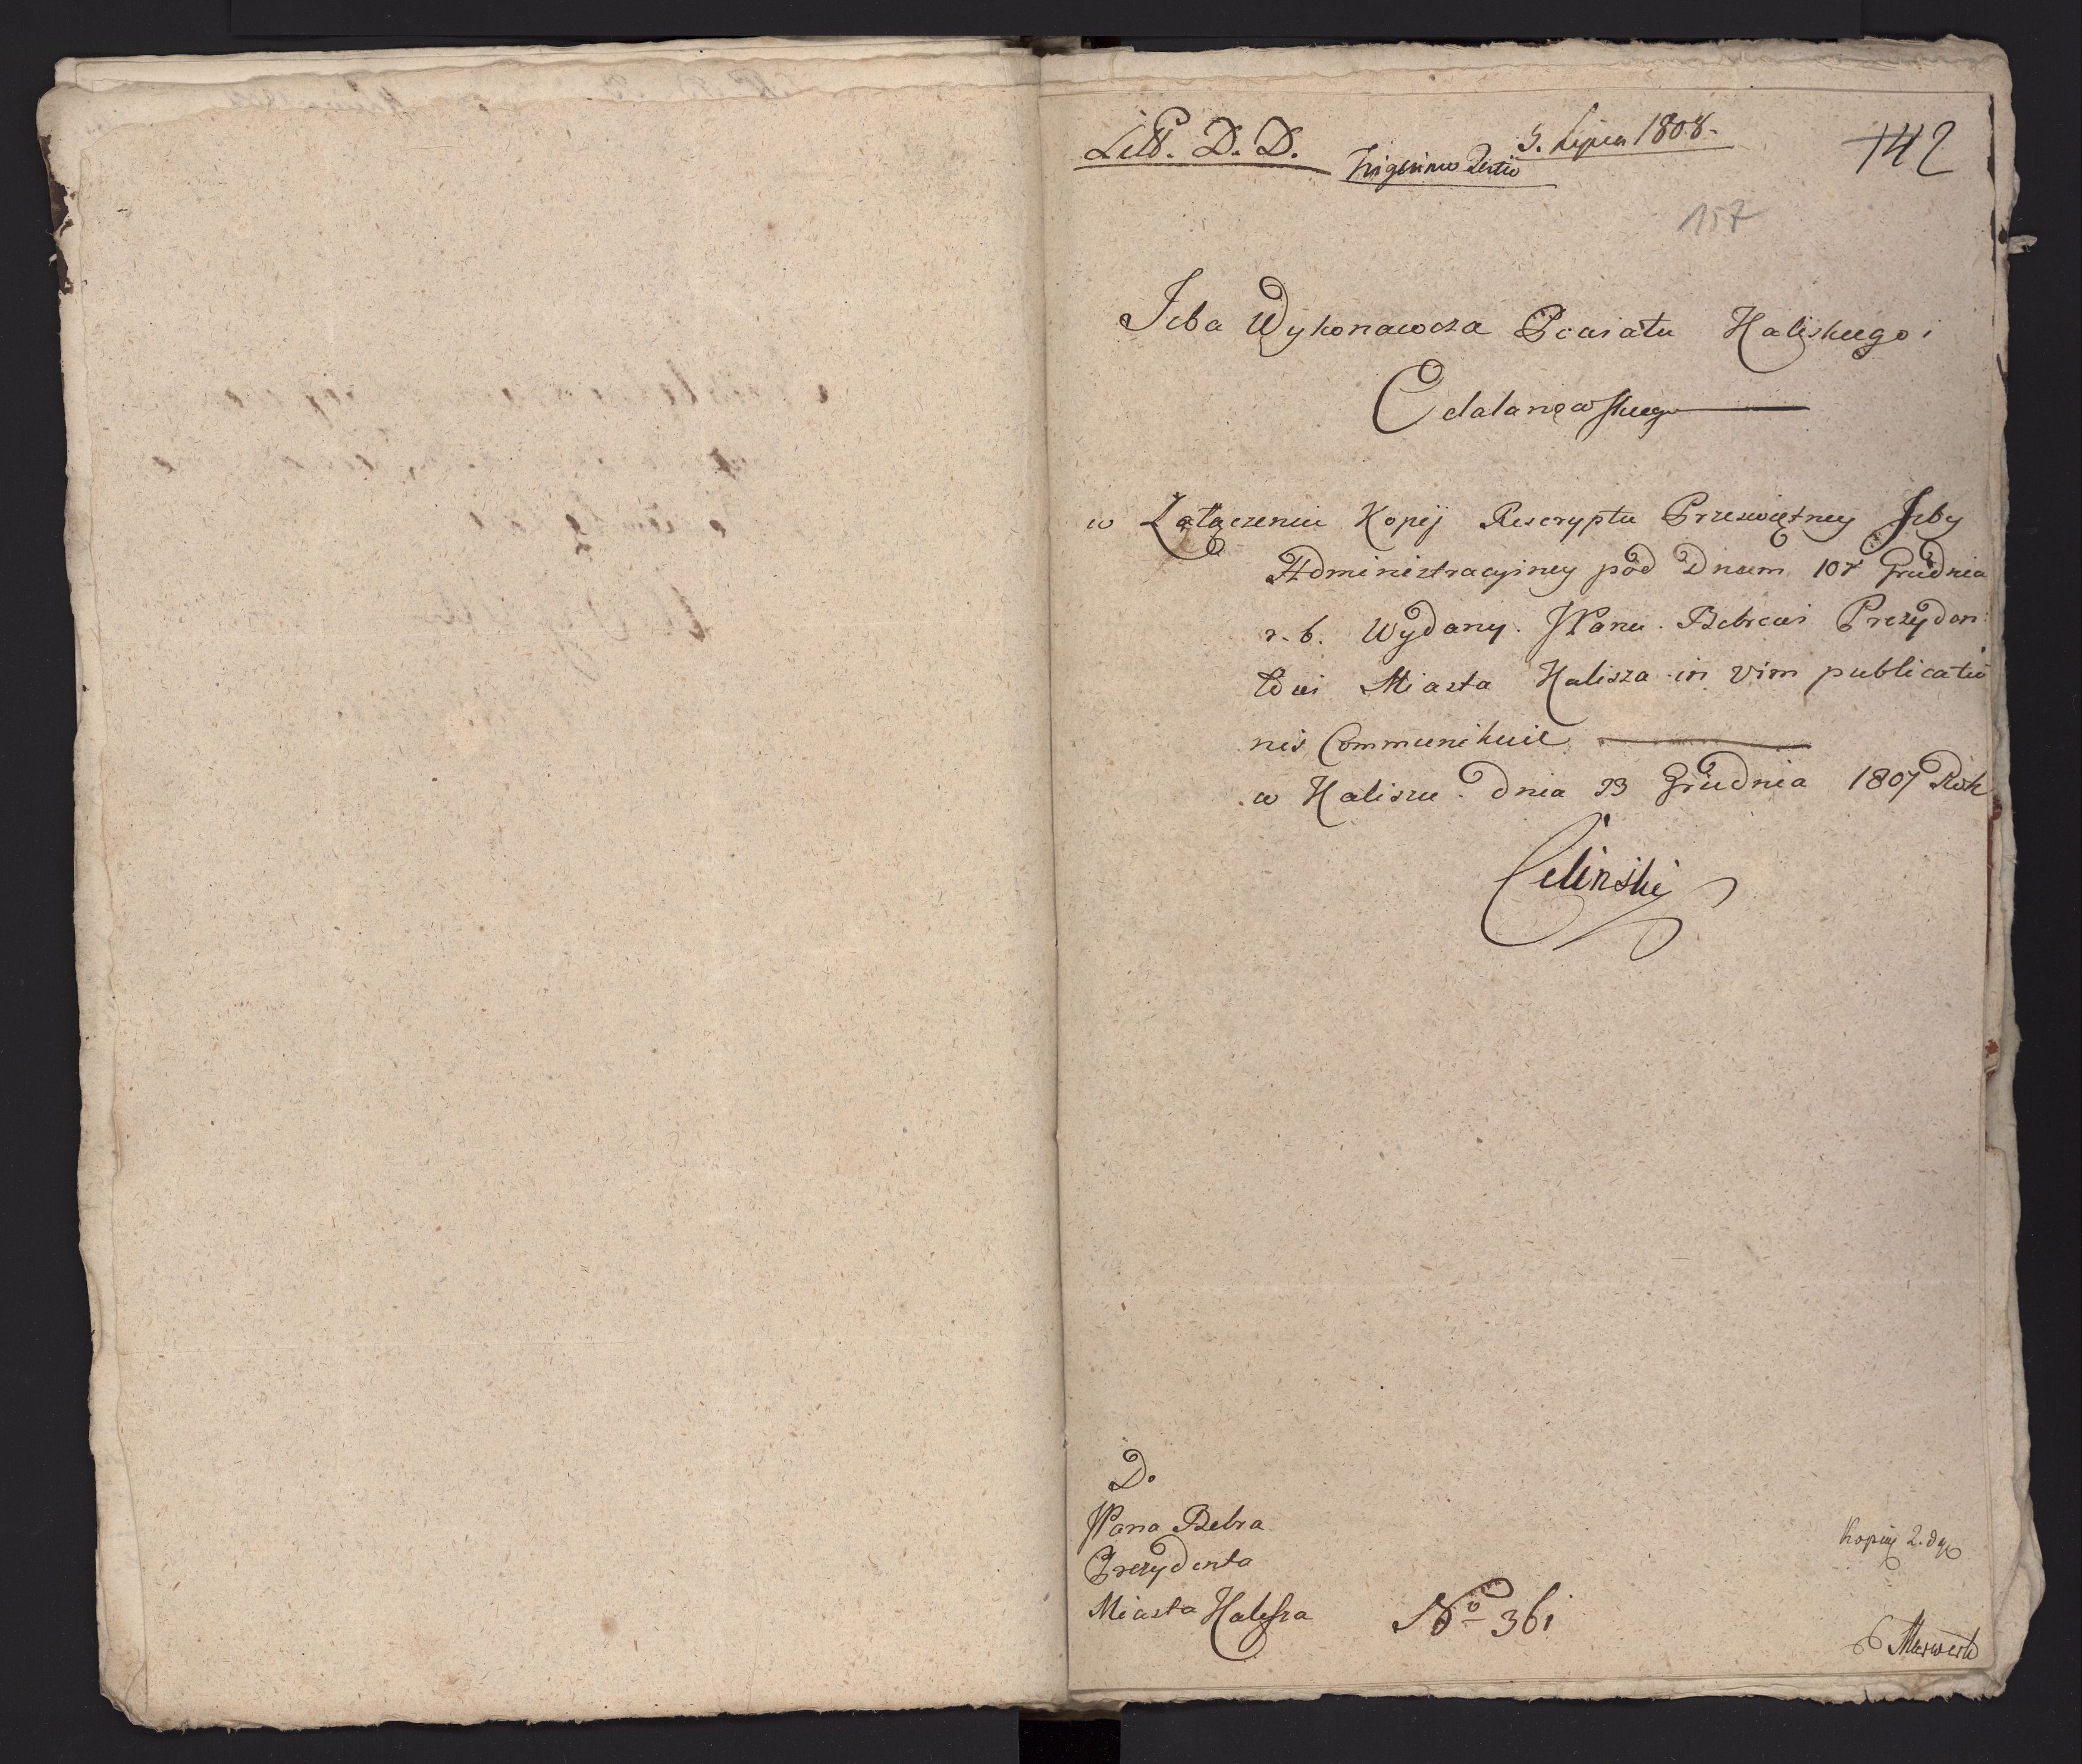 Litt. D. D.
Trigesimo Tertio
5. Lipca 1808.
142
157
Jzba Wykonawcza Powiatu Kaliskiego i
Odalanowskiego
w Załączeniu Kopij Rescryptu Przeświętney Jzby
Administracyiney pod Dnem 10τ Grudnia
r. b. Wydany. JPanu. Bebrowi Prezyden:
towi Miasta Kalisza in vim publicatio
nis Communikuie
w Kaliszu dnia 23 Grudnia 1807 Rok
Celinski
Do
JPana Bebra
Prezydenta
Miasta Kalisza
No 361
Kopiy 2.